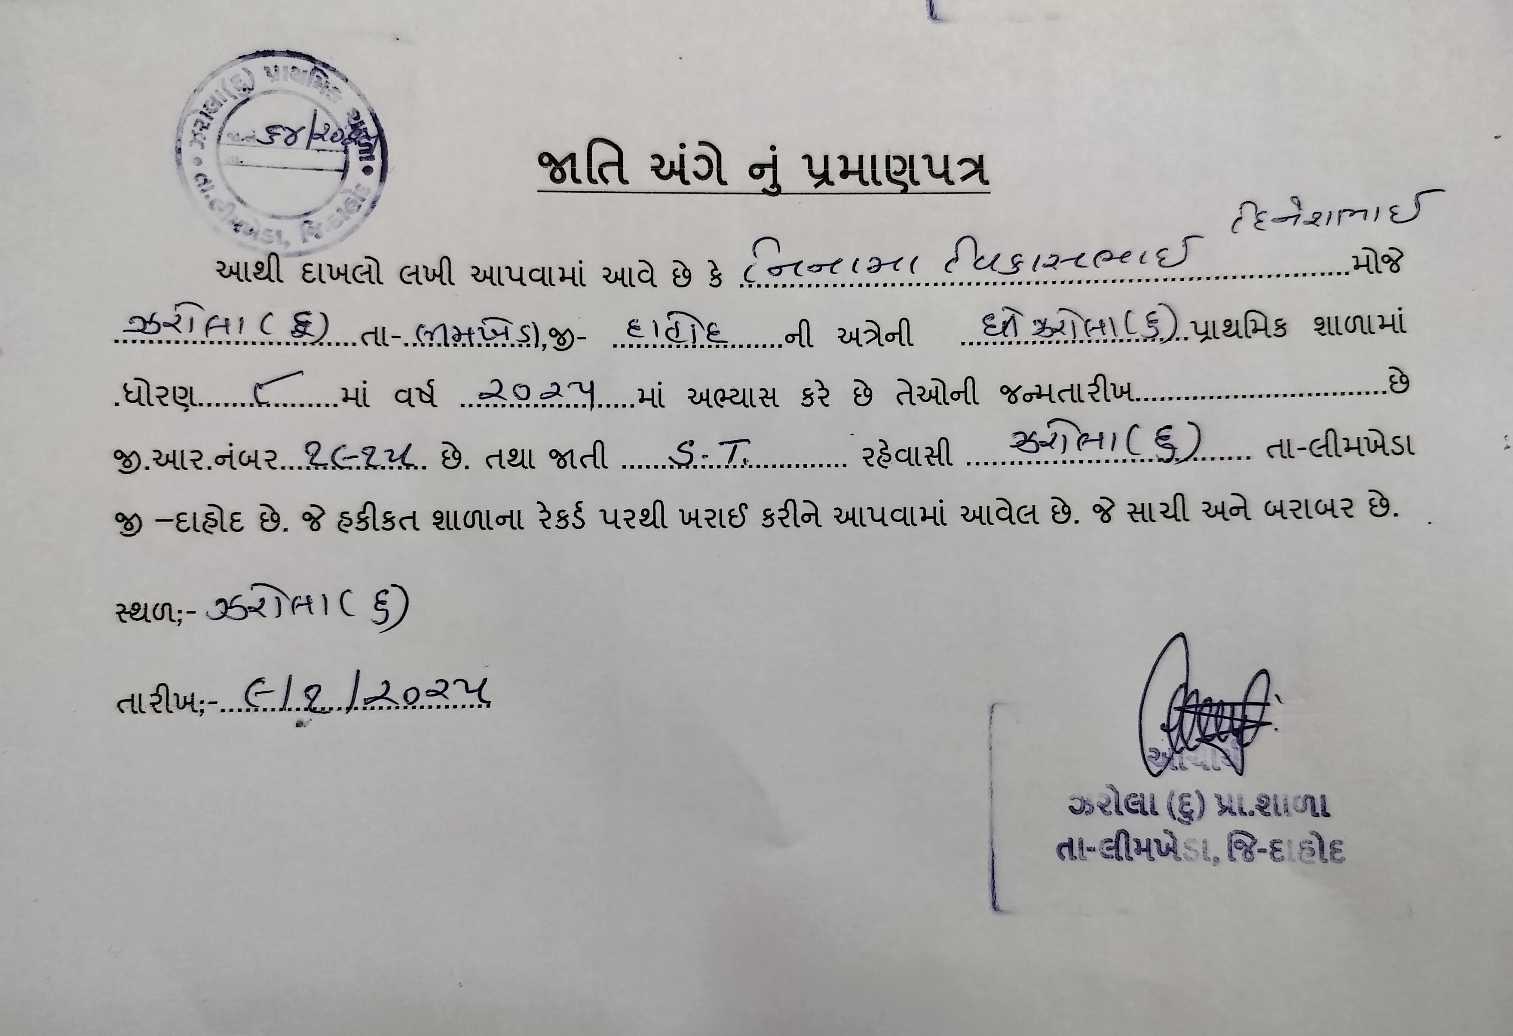 ઝરોલા(દુ) પ્રાથમિક શાળા
તા.લીમખેડા, જિ-દાહોદ
જાતિ અંગે નું પ્રમાણપત્ર
દિનેશભાઈ
આથી દાખલો લખી આપવામાં આવે છે કે નિનામા વિકાસભાઈ મોજે
ઝરોલા(દુ) તા-લીમખેડા,જી- દાહોદ ની અત્રેની ઝરોલા(દુ) પ્રાથમિક શાળામાં
.ધોરણ......૮......માં વર્ષ ૨૦૨૫ માં અભ્યાસ કરે છે તેઓની જન્મતારીખ..............................છે
જી.આર.નંબર ૧૯૧૫ છે. તથા જાતી S.T. રહેવાસી ઝરોલા(દુ) તા-લીમખેડા
જી –દાહોદ છે. જે હકીકત શાળાના રેકર્ડ પરથી ખરાઈ કરીને આપવામાં આવેલ છે. જે સાચી અને બરાબર છે.
સ્થળ;- ઝરોલા(દુ)
તારીખ;- ૯/૧/૨૦૨૫
આચાર્ય
ઝરોલા (દુ) પ્રા.શાળા
તા-લીમખેડા, જિ-દાહોદ